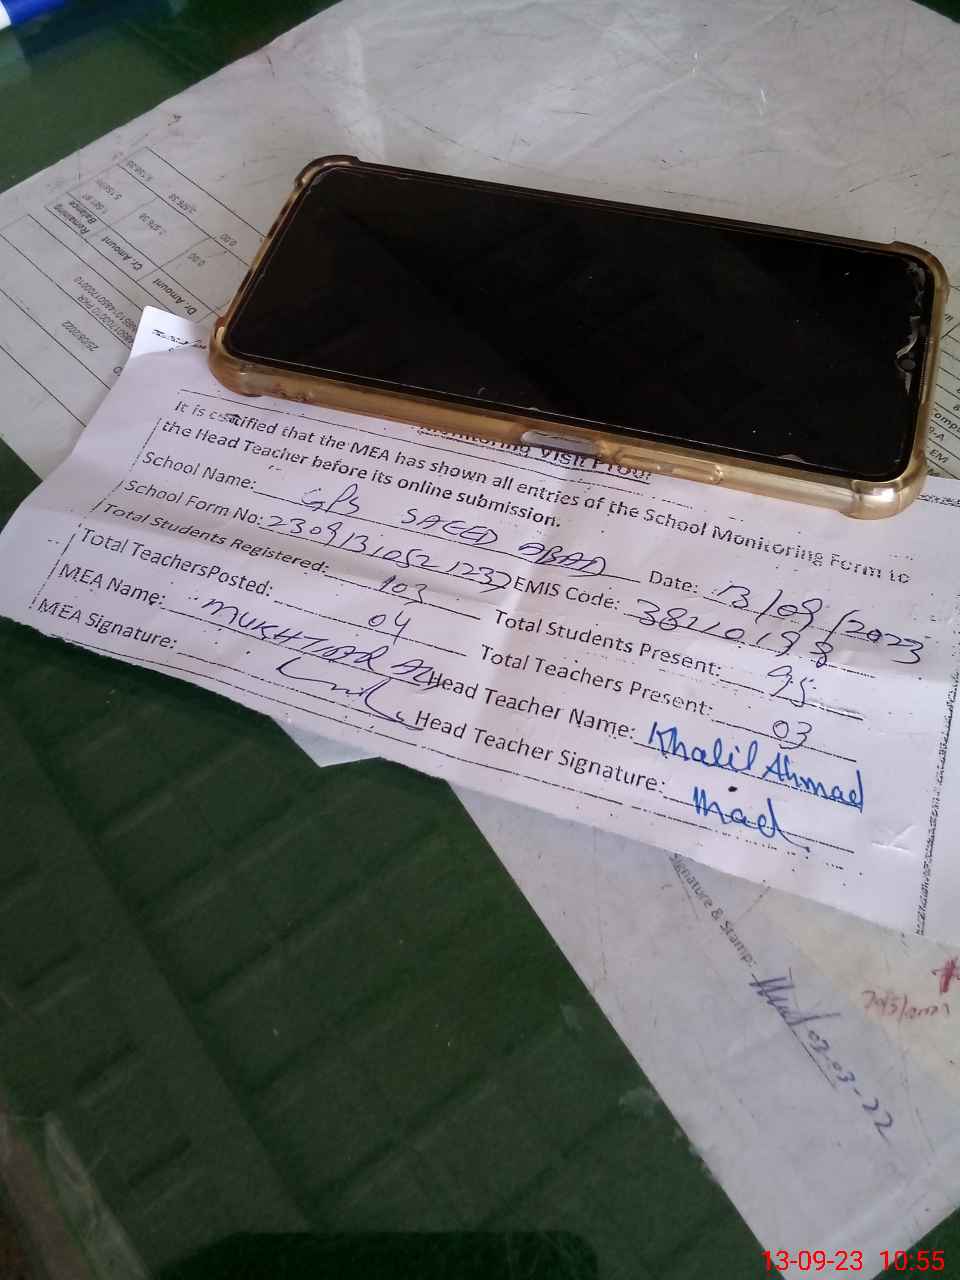 Monitoring Visit Proof
It is certified that the MEA has shown all entries of the School Monitoring Form to
the Head Teacher before its online submission.
School Name: GPS SAEED ABAD Date: 13/09/2023
School Form No: 23091310521237 EMIS Code: 38110198
Total Students Registered: 103 Total Students Present: 95
Total TeachersPosted: 04 Total Teachers Present: 03
MEA Name: MUKHTIAR ALI Head Teacher Name: Khalil Ahmad
MEA Signature: Head Teacher Signature:
Signature & Stamp:
03-03-22
Remaining
Balance
Cr Amount
Dr. Amount
0.00
0.00
25/08/2022
13-09-23 10:55